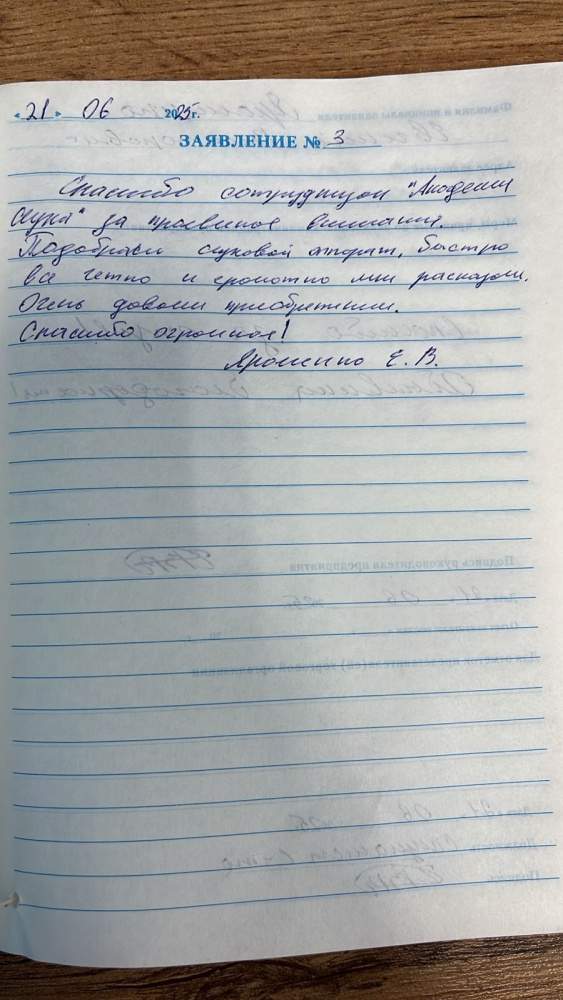 «21» 06 2025г.
ЗАЯВЛЕНИЕ № 3
Спасибо сотрудникам "Академии
слуха" за проявленое внимание.
Подобрали слуховой аппарат, быстро
все четно и громотно мне расказали.
Очень довольны приобретением.
Спасибо огромное!
Яроменко Е. В.